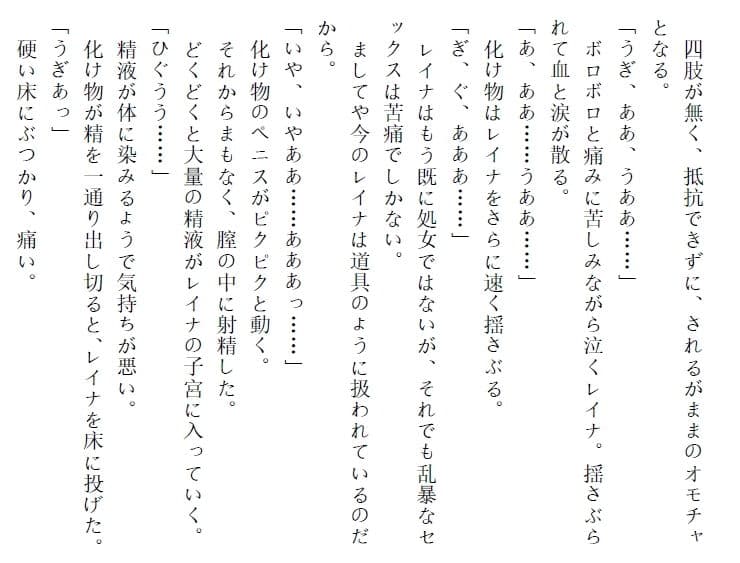 四肢が無く、抵抗できずに、されるがままのオモチャ
となる。
「うぎ、ああ、うああ……」
ボロボロと痛みに苦しみながら泣くレイナ。揺さぶら
れて血と涙が散る。
「あ、ああ……うああ……」
化け物はレイナをさらに速く揺さぶる。
「ぎ、ぐ、あああ……」
レイナはもう既に処女ではないが、それでも乱暴なセ
ックスは苦痛でしかない。
ましてや今のレイナは道具のように扱われているのだ
から。
「いや、いやああ……あああっ……」
化け物のペニスがピクピクと動く。
それからまもなく、膣の中に射精した。
どくどくと大量の精液がレイナの子宮に入っていく。
「ひぐうう……」
精液が体に染みるようで気持ちが悪い。
化け物が精を一通り出し切ると、レイナを床に投げた。
「うぎあっ」
硬い床にぶつかり、痛い。